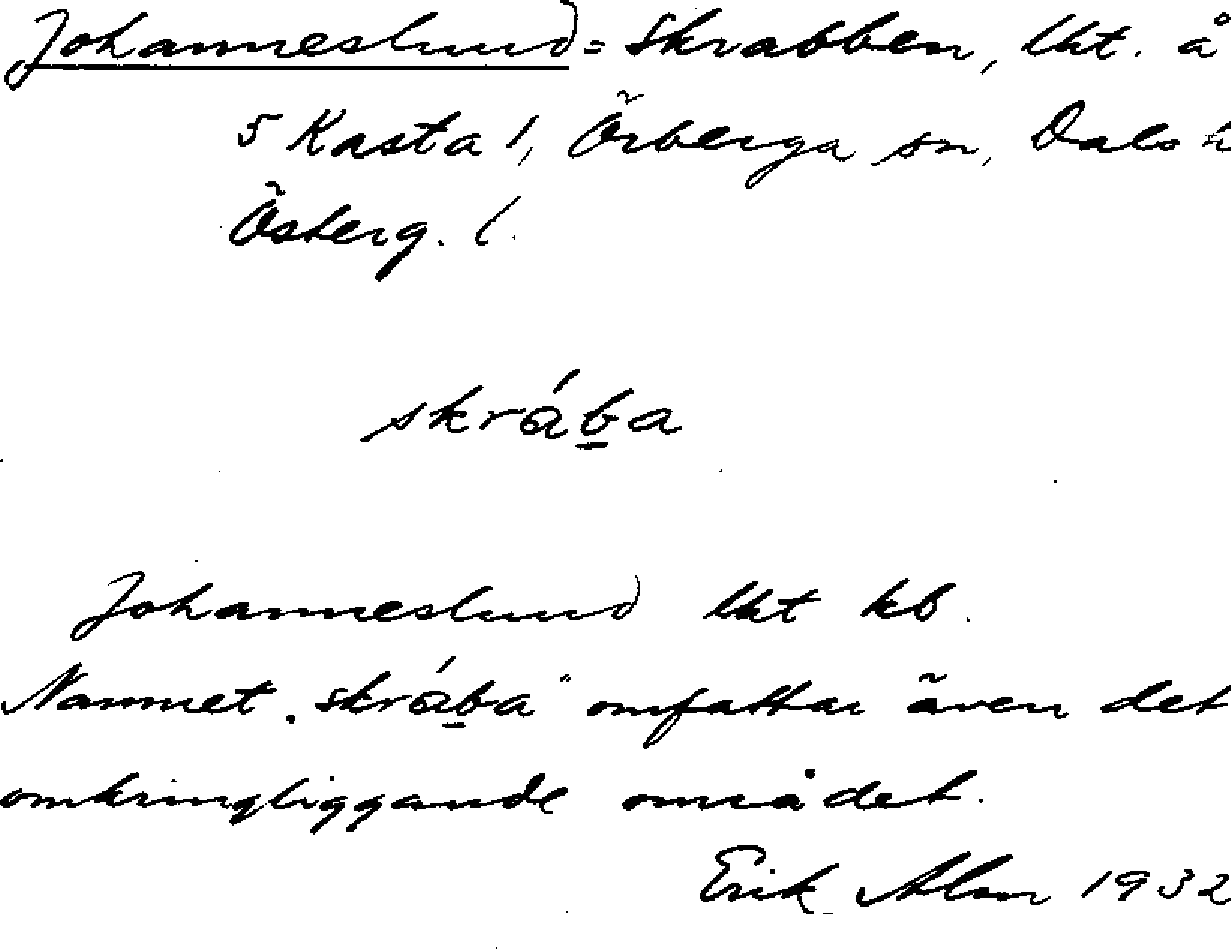 Johanneslund = Skrabben, lht. å
5 Kasta 1, Örberga sn, Dals h
Österg. l.
skráb̲a
Johanneslund lht kb.
Namnet „skráb̲a” omfattar även det
omkringliggande området.
Erik Alm 1932